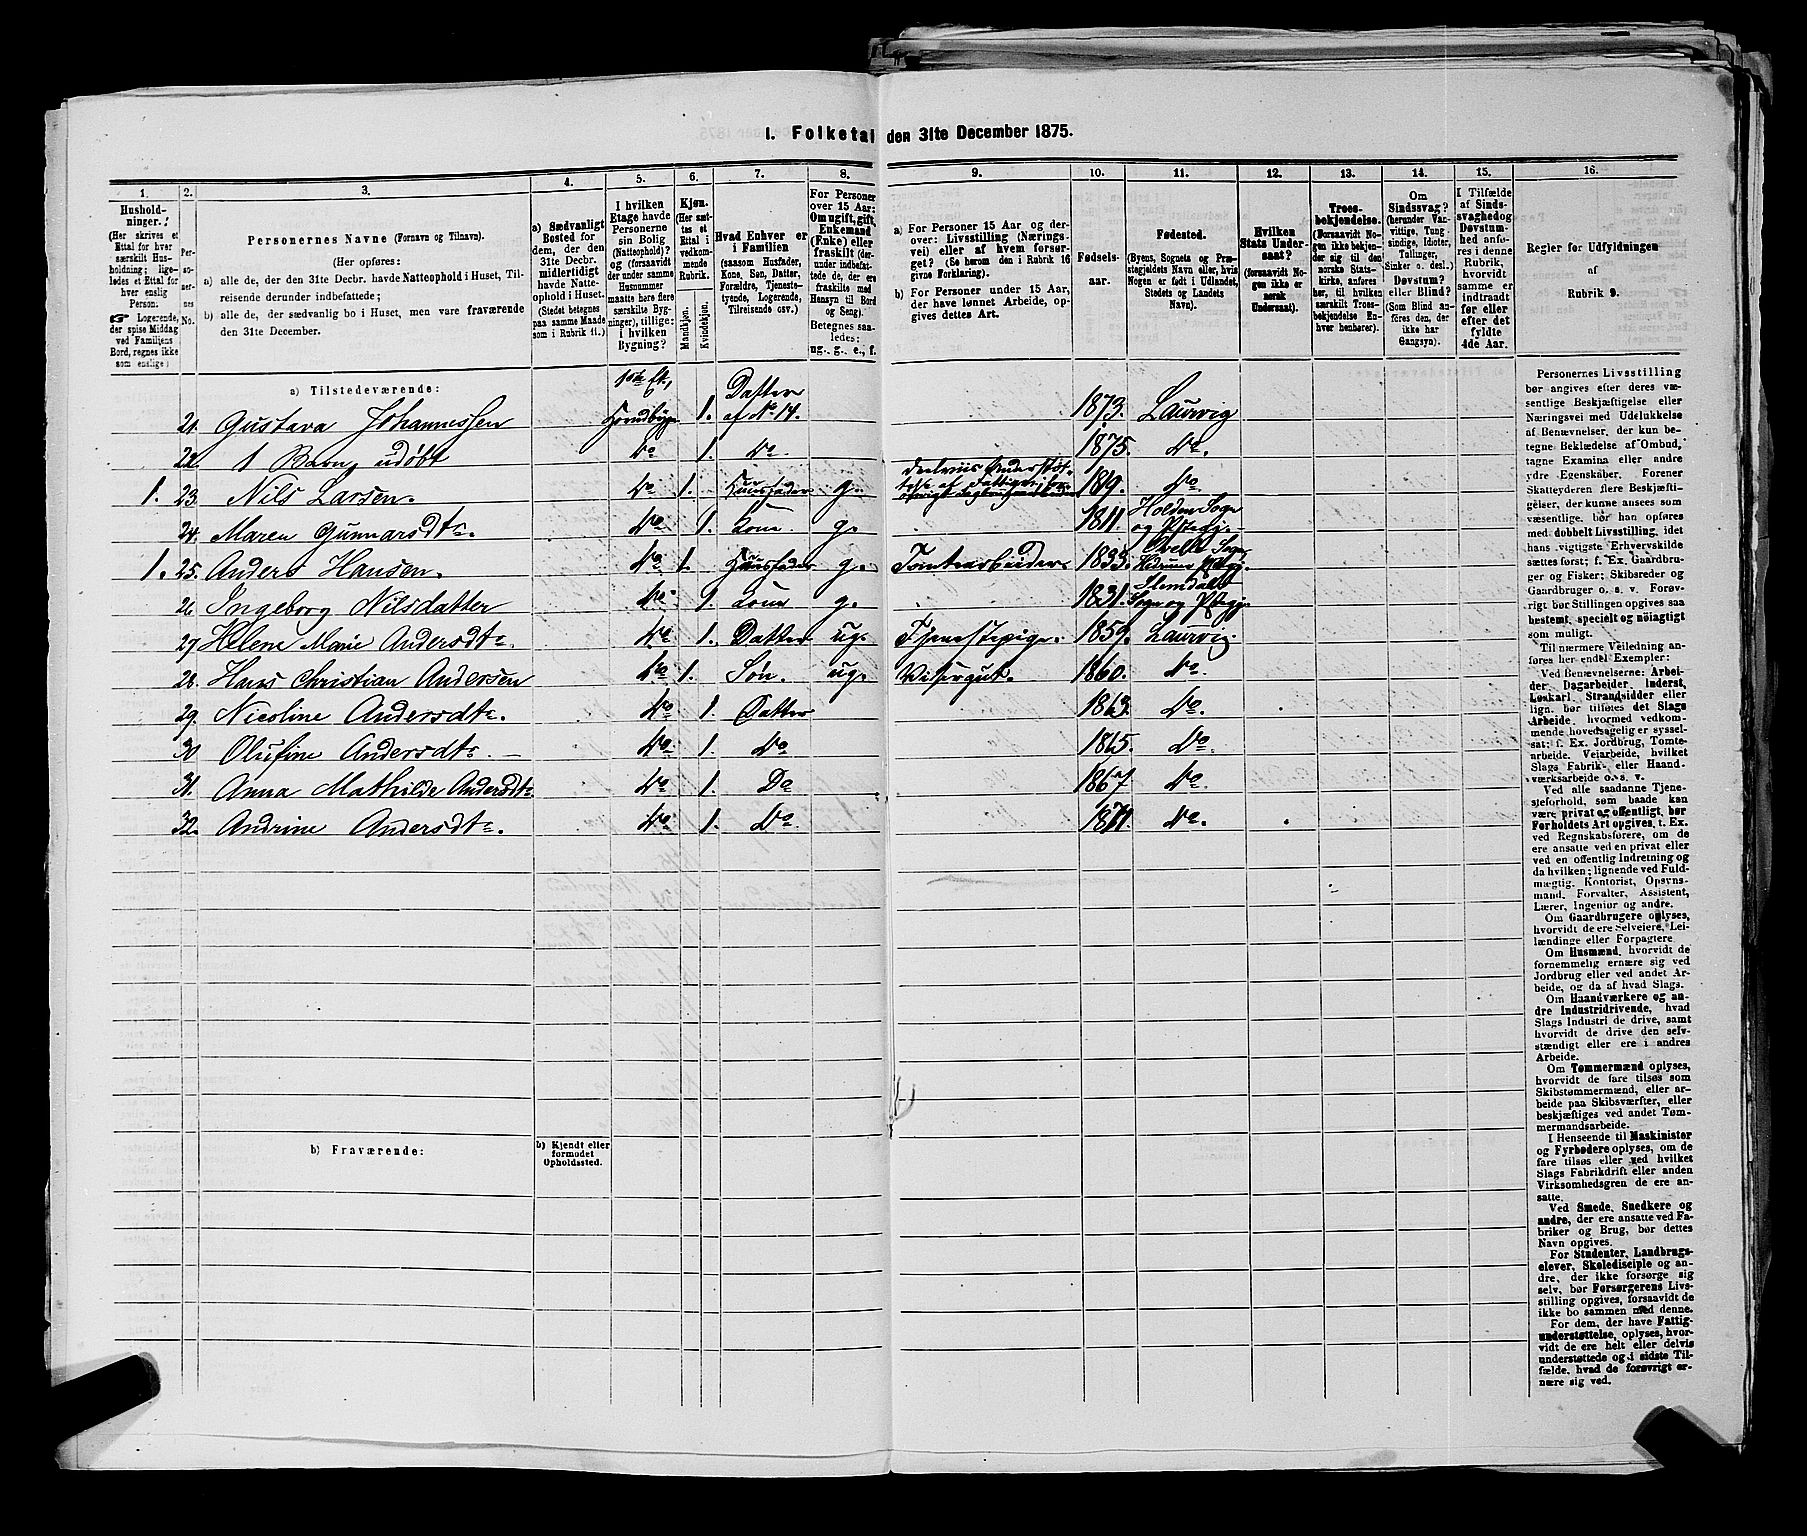 I. Folketal den 31te December 1875.
1.
Husholdninger.
(Her skrives et
Ettal for hver
særskilt Husholdning; ligeledes
et Ettal for
hver enslig
Person.
☞ Logerende,
der spise Middag
ved Familiens
Bord, regnes ikke
som enslige.)
2.
Personernes
No.
3.
Personernes Navne (Fornavn og Tilnavn).
(Her opføres:
a) alle de, der den 31te Decbr. havde Natteophold i Huset, Tilreisende derunder indbefattede;
b) alle de, der sædvanlig bo i Huset, men vare fraværende
den 31te December.
4.
a) Sædvanligt
Bosted for
dem, der den
31te Decbr.
midlertidigt
havde Natteophold
i Huset.
(Stedet betegnes
paa samme Maade
som i Rubrik 11.)
5.
I hvilken
Etage havde
Personerne
sin Bolig
(Natteophold)?
og (forsaavidt
der under samme
Husnummer
maatte høre flere
særskilte Bygninger),
tillige:
i hvilken
Bygning?
6.
Kjøn.
(Her sættes
et
Ettal i
vedkommende
Rubrik.
Mandkjøn.
Kvindekjøn.
7.
Hvad Enhver er
i Familien
(saasom Husfader,
Kone, Søn, Datter,
Forældre, Tjenestetyende,
Logerende,
Tilreisende osv.)
8.
For Personer
over 15 Aar:
Om ugift, gift,
Enkemand
(Enke) eller
fraskilt
Betegnes saaledes:
ug., g., e., f.
9.
a) For Personer 15 Aar og derover:
Livsstilling (Næringsvei)
eller af hvem forsørget?
(Se herom den i Rubrik 16
givne Forklaring).
b) For Personer under 15 Aar,
der have lønnet Arbeide, opgives
dettes Art.
10.
Fødselsaar.
11.
Fødested.
(Byens, Sognets og Præstegjeldets
Navn eller, hvis
Nogen er født i Udlandet,
Stedets og Landets
Navn).
12.
Hvilken
Stats Undersaat?
(forsaavidt Nogen
ikke er
norsk
Undersaat).
13.
Troesbekjendelse.
(Forsaavidt Nogen
ikke bekjender
sig til den
norske Statskirke,
anføres
her, til hvilken
særskilt Troesbekjendelse
Enhver
henhører).
14.
Om
Sindssvag?
(herunder Vanvittige,
Tungsindige,
Idioter,
Tullinger,
Sinker o. desl.)
Døvstum?
eller Blind?
(Som Blind anføres
den, der
ikke har
Gangsyn).
15.
I Tilfælde
af Sindssvaghed
og
Døvstumhed
anføres
i denne
Rubrik,
hvorvidt
samme er
indtraadt
før eller
efter det
fyldte
4de Aar.
16.
Regler for Udfyldningen
af
Rubrik 9.
a) Tilstedeværende:
21. Gustava Johannessen 1ste Et, 1. Datter af No 14. 1873. Laurvig
22. 1 Barn, udøbt Do 1. Do. 1875. Do.
1. 23. Nils Larsen. Do 1. Huusfader g. 1819. Do
24. Maren Gunnarsdt. Do 1. Kone g. 1811. Holden Sogn og
1. 25. Anders Hansen. Do 1. Huusfader g. Tomtearbeider 1833.
26. Ingeborg Nilsdatter Do 1. Kone g. 1831. Sogn og
27 Helene Marie Andersdt. Do 1. Datter ug. Tjenestepige. 1857. Laurvig.
28. Hans Christian Andersen Do 1. Søn. ug. Visergut. 1860. Do.
29. Nicoline Andersdt. Do. 1. Datter 1863. Do.
30 Olufine Andersdt. Do. 1. Do 1865. Do.
31. Anna Mathilde Andersdt. Do 1. Do 1867 Do.
32. Andrine Andersdt. Do. 1. Do. 1871. Do.
b) Fraværende:
b) Kjendt eller
formodet
Opholdssted.
Personernes Livsstilling
bør angives efter deres væsentlige
Beskjæftigelse eller
Næringsvei med Udelukkelse
af Benævnelser, der kun betegne
Beklædelse af Ombud,
tagne Examina eller andre
ydre Egenskaber. Forener
Skatteyderen flere Beskjæftigelser,
der kunne ansees som
væsentlige, bør han opføres
med dobbelt Livsstilling, idet
hans vigtigste Erhvervskilde
sættes først; f. Ex. Gaardbruger
og Fisker; Skibsreder og
Gaardbruger o. s. v. Forøvrigt
bør Stillingen opgives saa
bestemt, specielt og nøiagtigt
som muligt.
Til nærmere Veiledning anføres
her endel Exempler:
Ved Benævnelserne: Arbeider,
Dagarbeider, Inderst,
Løskarl, Strandsidder eller
lign. bør tilføies det Slags
Arbeide, hvormed vedkommende
hovedsagelig er sysselsat;
f. Ex. Jordbrug, Tomtearbeide,
Veiarbeide, hvilket
Slags Fabrik- eller Haandværksarbeide
o. s. v.
Ved alle saadanne Tjenesteforhold,
som baade kan
være privat og offentligt, bør
Forholdets Art opgives, t. Ex.
ved Regnskabsførere, om de
ere ansatte ved en privat eller
ved en offentlig Indretning og
da hvilken; lignende ved Fuldmægtig,
Kontorist, Opsynsmand,
Forvalter, Assistent,
Lærer, Ingeniør og andre.
Om Gaardbrugere oplyses,
hvorvidt de ere Selveiere, Leilændinge
eller Forpagtere.
Om Husmænd, hvorvidt de
fornemmelig ernære sig ved
Jordbrug eller ved andet Arbeide,
og da af hvad Slags.
Om Haandværkere og andre
Industridrivende, hvad
Slags Industri de drive, samt
hvorvidt de drive den selvstændigt
eller ere i andres
Arbeide.
Om Tømmermænd oplyses,
hvorvidt de fare tilsøs som
Skibstømmermænd, eller arbeide
paa Skibsværfter, eller
beskjæftiges ved andet Tømmermandsarbeide.
I Henseende til Maskinister
og Fyrbødere oplyses, om de
fare tilsøs eller ved hvilket
Slags Fabrikdrift eller anden
Virksomhedsgren de ere ansatte.
Ved Smede, Snedkere og
andre, der ere ansatte ved Fabriker
og Brug, bør dettes
Navn opgives.
For Studenter, Landbrugselever,
Skoledisciple og andre,
der ikke forsørge sig
selv, bør Forsørgerens Livsstilling
opgives, forsaavidt de
ikke bo sammen med denne.
For dem, der have Fattigunderstøttelse,
oplyses, hvorvidt
de ere helt eller delvis
understøttede og i sidste Tilfælde,
hvad de forøvrigt ernære
sig ved.